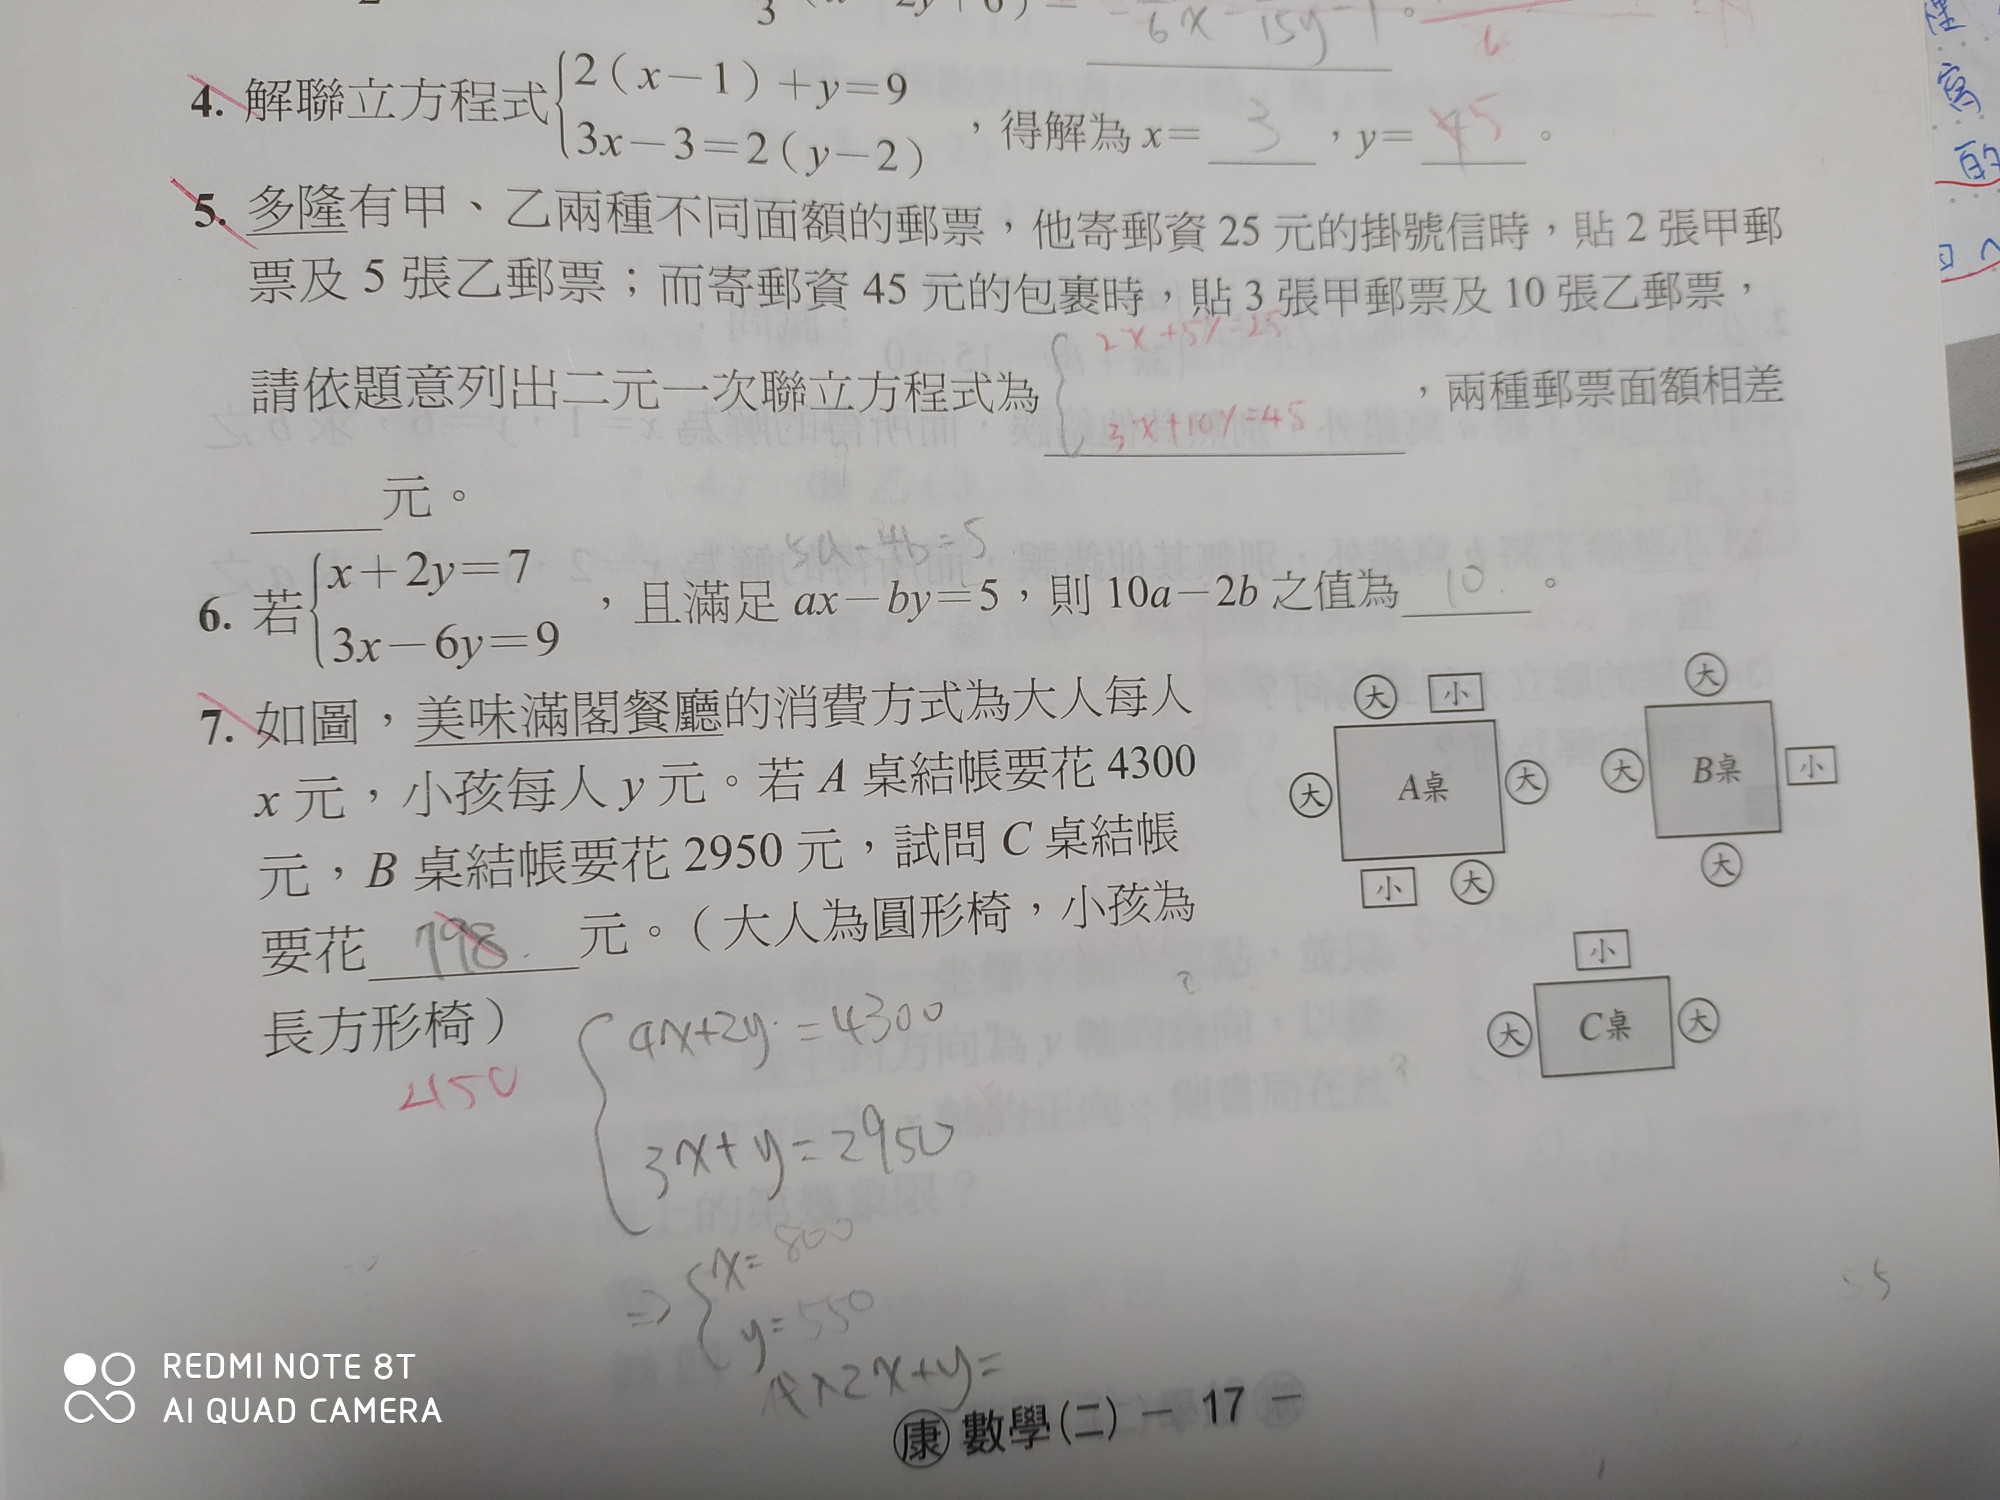 6x - 15y - 1
4. 解聯立方程式{2(x-1)+y=9
3x-3=2(y-2)
,得解為 x= 3 ,y= 5 。
5. 多隆有甲、乙兩種不同面額的郵票,他寄郵資 25 元的掛號信時,貼 2 張甲郵
票及 5 張乙郵票;而寄郵資 45 元的包裹時,貼 3 張甲郵票及 10 張乙郵票,
2x+5y=25
請依題意列出二元一次聯立方程式為
3x+10y=45
,兩種郵票面額相差
元。
5a-4b=5
6. 若{x+2y=7
3x-6y=9
,且滿足 ax-by=5,則 10a-2b 之值為 10 。
7. 如圖,美味滿閣餐廳的消費方式為大人每人
x 元,小孩每人 y 元。若 A 桌結帳要花 4300
元,B 桌結帳要花 2950 元,試問 C 桌結帳
要花 798 元。(大人為圓形椅,小孩為
長方形椅)
450
4x+2y=4300
3x+y=2950
⇒{x=800
y=550
2x+y=
大 小
大 A桌 大
小 大
大
大 B桌 小
大
小
大 C桌 大
康 數學(二) - 17 -
寫
的
REDMI NOTE 8T
AI QUAD CAMERA